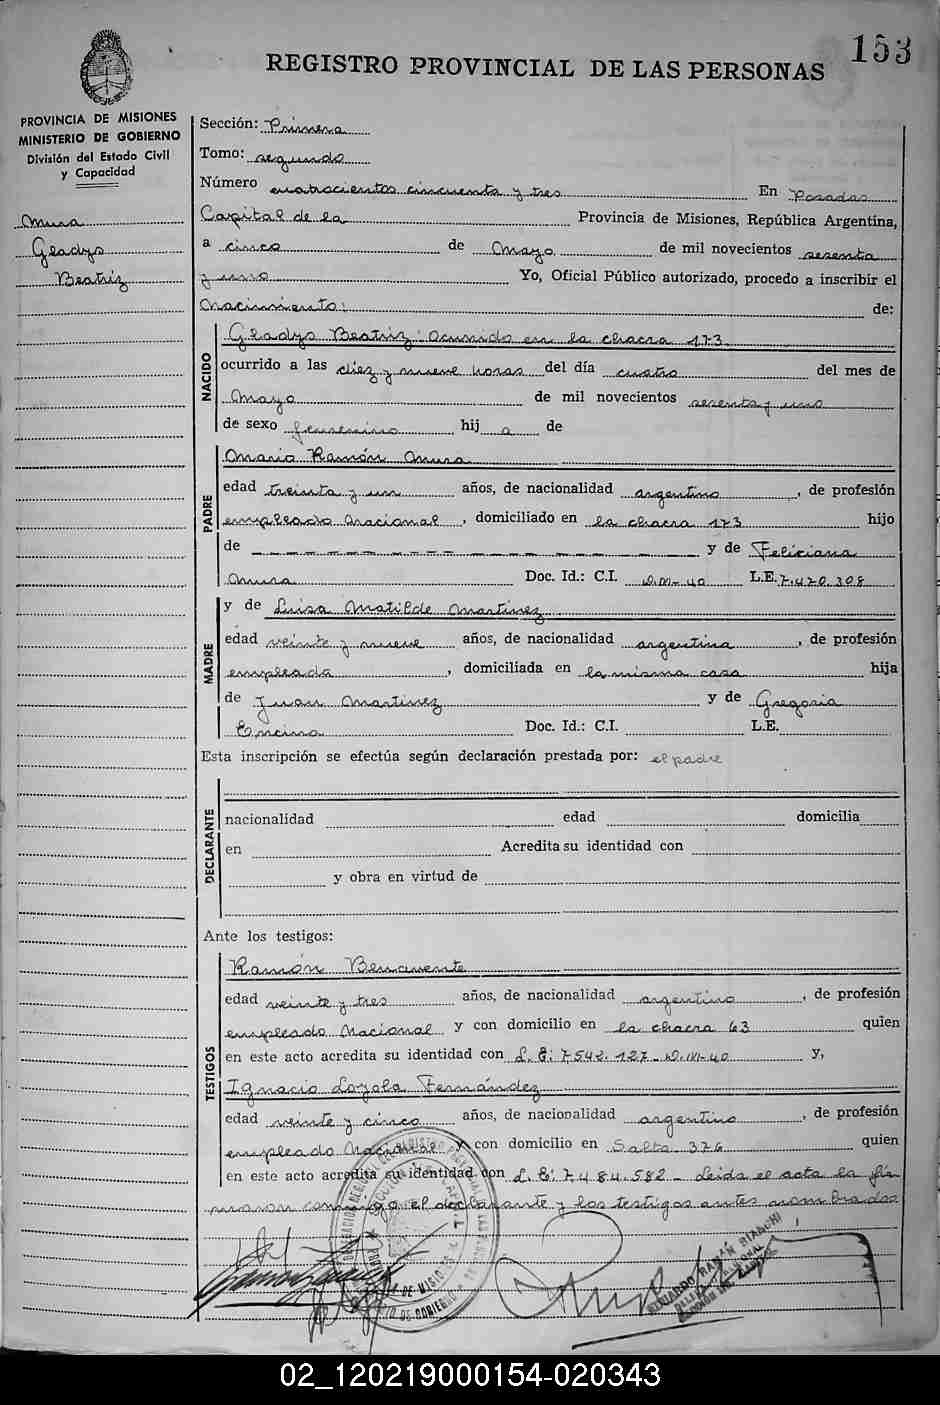 153
REGISTRO PROVINCIAL DE LAS PERSONAS
PROVINCIA DE MISIONES
MINISTERIO DE GOBIERNO
División del Estado Civil
y Capacidad
Mura
Gladys
Beatriz
Sección: Primera
Tomo: segundo
Número cuatrocientos cincuenta y tres En Posadas
Capital de la Provincia de Misiones, República Argentina,
a cinco de Mayo de mil novecientos sesenta
y uno Yo, Oficial Público autorizado, procedo a inscribir el
Nacimiento: de:
NACIDO
Gladys Beatriz: Ocurrido en la chacra 173
ocurrido a las diez y nueve horas del día cuatro del mes de
Mayo de mil novecientos sesenta y uno
de sexo femenino hij a de
PADRE
Mario Ramón Mura
edad treinta y un años, de nacionalidad argentino, de profesión
empleado Nacional, domiciliado en la chacra 173 hijo
de _ _ _ _ _ _ _ _ _ _ _ _ _ y de Feliciana
Mura Doc. Id.: C.I. D.M-40 L.E. 7.420.308
MADRE
y de Luisa Matilde Martinez
edad veinte y nueve años, de nacionalidad argentina, de profesión
empleada, domiciliada en la misma casa hija
de Juan Martinez y de Gregoria
Encina Doc. Id.: C.I. L.E.
Esta inscripción se efectúa según declaración prestada por: el padre
DECLARANTE
nacionalidad edad domicilia
en Acredita su identidad con
y obra en virtud de
Ante los testigos:
TESTIGOS
Ramón Benavente
edad veinte y tres años, de nacionalidad argentino, de profesión
empleado Nacional y con domicilio en la chacra 63 quien
en este acto acredita su identidad con L.E: 7.542.127-D.M-40 y,
Ignacio Loyola Fernández
edad veinte y cinco años, de nacionalidad argentino, de profesión
empleado Nacional y con domicilio en Salta 376 quien
en este acto acredita su identidad con L.E: 7.484.582 - Leida el acta la fir
maron conmigo el declarante y los testigos antes nombrados
EDUARDO RAMÓN BIANCHI
02_120219000154-020343